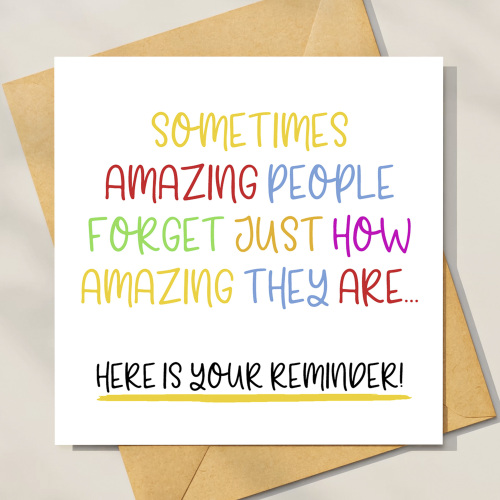 SOMETIMES
AMAZING PEOPLE
FORGET JUST HOW
AMAZING THEY ARE...
HERE IS YOUR REMINDER!